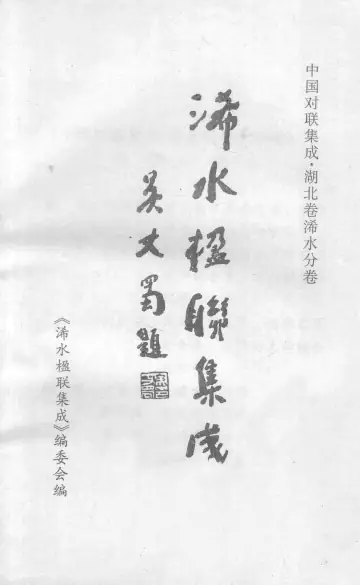 中国对联集成·湖北卷浠水分卷
浠水楹聯集成
吴丈蜀題
《浠水楹联集成》编委会编